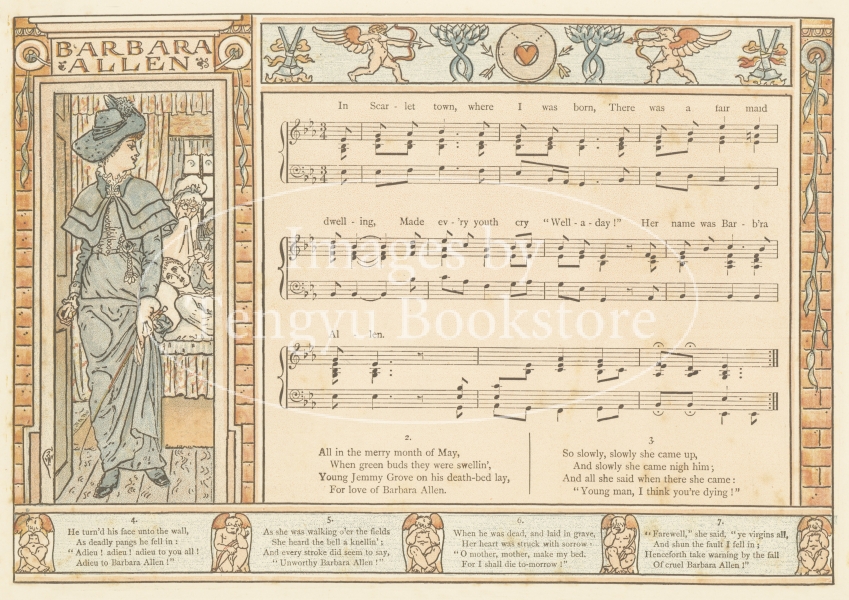 BARBARA
ALLEN
In Scar - let town, where I was born, There was a fair maid
dwell - ing, Made ev - 'ry youth cry "Well - a - day!" Her name was Bar - b'ra
Al - len.
2.
All in the merry month of May,
When green buds they were swellin',
Young Jemmy Grove on his death-bed lay,
For love of Barbara Allen.
3
So slowly, slowly she came up,
And slowly she came nigh him;
And all she said when there she came:
"Young man, I think you're dying!"
4.
He turn'd his face unto the wall,
As deadly pangs he fell in:
"Adieu! adieu! adieu to you all!
Adieu to Barbara Allen!"
5.
As she was walking o'er the fields
She heard the bell a knellin';
And every stroke did seem to say,
"Unworthy Barbara Allen!"
6.
When he was dead, and laid in grave,
Her heart was struck with sorrow.
"O mother, mother, make my bed.
For I shall die to-morrow!"
7.
"Farewell," she said, "ye virgins all,
And shun the fault I fell in;
Henceforth take warning by the fall
Of cruel Barbara Allen!"
Images by
Tengyu Bookstore